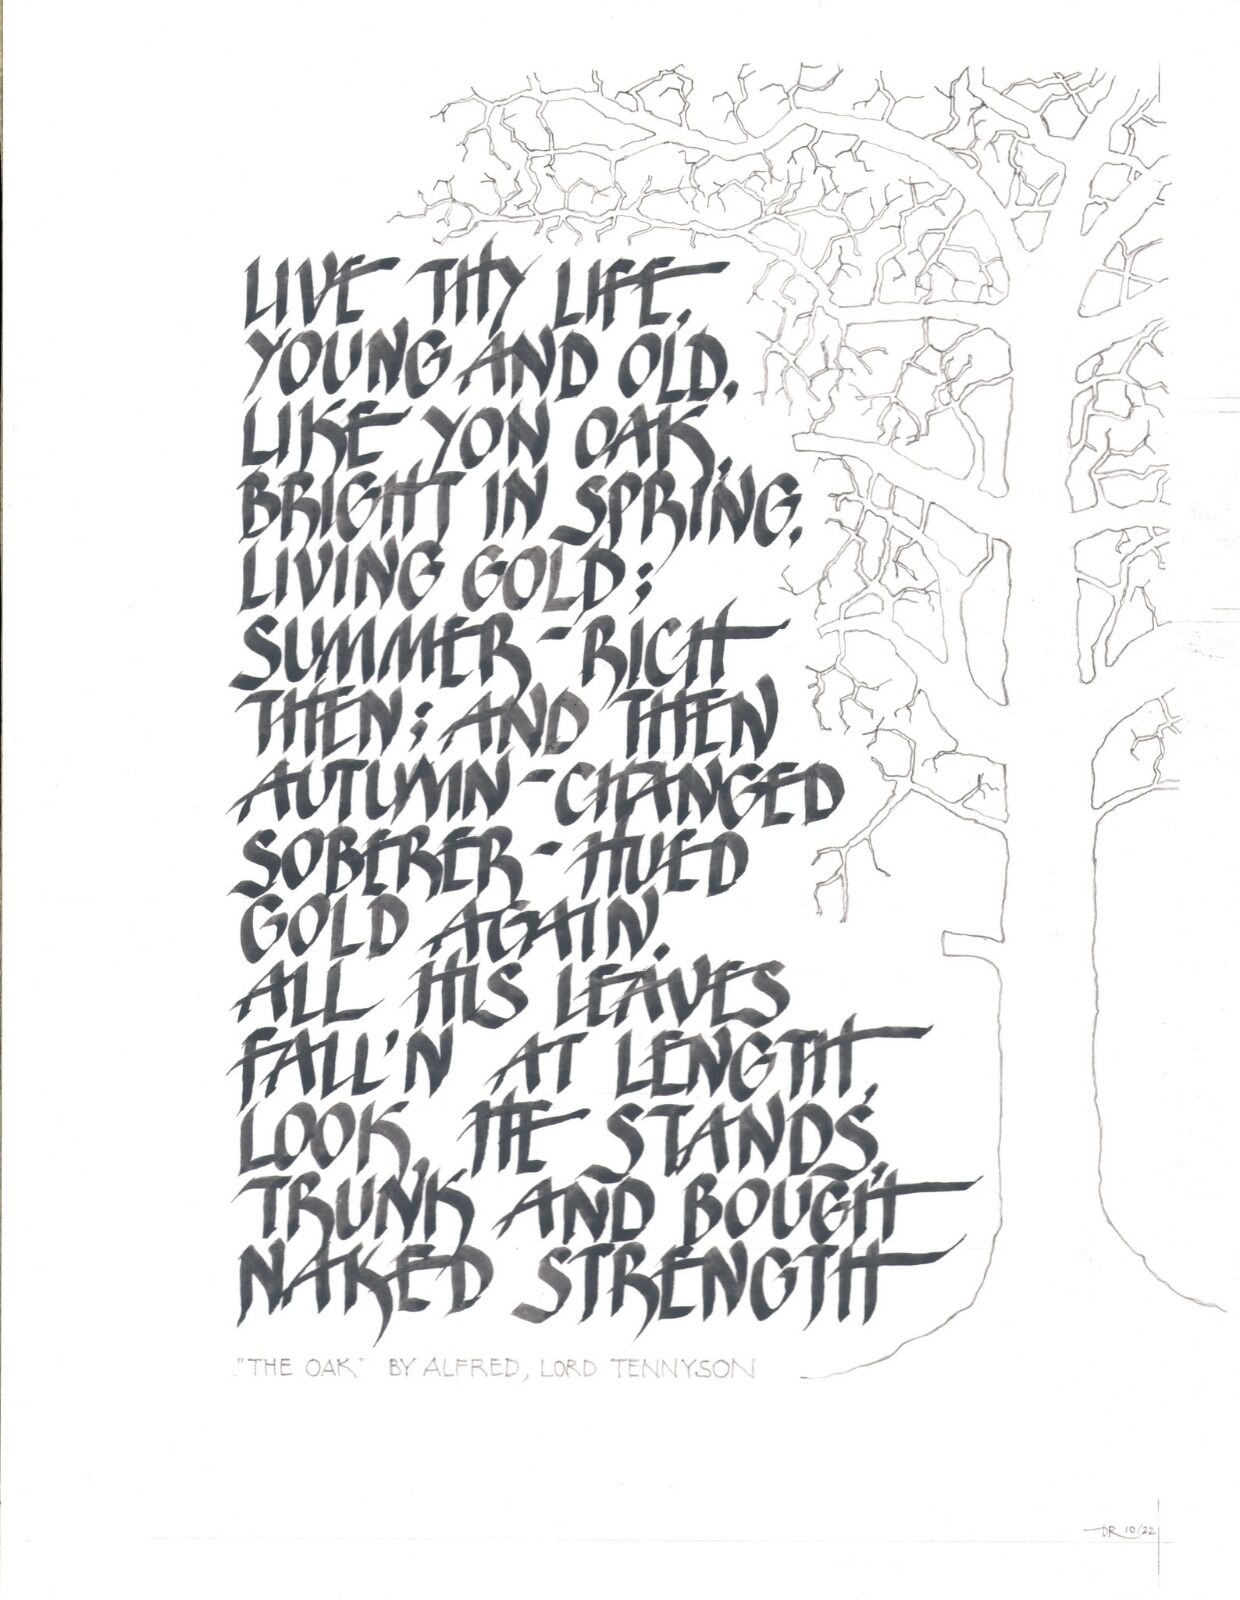 LIVE THY LIFE,
YOUNG AND OLD,
LIKE YON OAK,
BRIGHT IN SPRING,
LIVING GOLD;
SUMMER-RICH
THEN; AND THEN
AUTUMN-CHANGED
SOBERER-HUED
GOLD AGAIN.
ALL HIS LEAVES
FALL'N AT LENGTH,
LOOK, HE STANDS,
TRUNK AND BOUGH,
NAKED STRENGTH
"THE OAK" BY ALFRED, LORD TENNYSON
DR 10/22